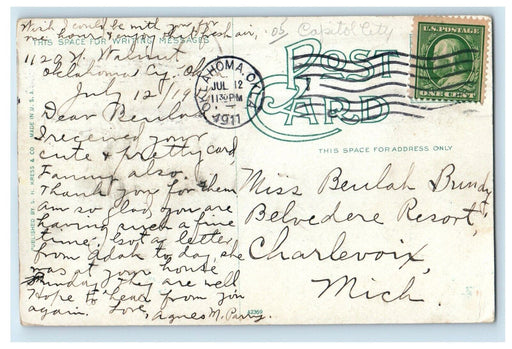 Wish I could be with you for
one hour & enjoy the fresh air,
05 Capitol City
THIS SPACE FOR WRITING MESSAGES
POST
CARD
1129 N. Walnut
Oklahoma Cy. Okla
July 12/1911
Dear Beulah
I received your
cute & pretty card
Fanny also.
Thank you for them
am so glad you are
having such a fine
time. I got a letter
from Adah to day, she
was at your house
Sunday they are well
Hope to hear from you
again. Love,
Agnes M. Parry.
OKLAHOMA, OKLA.
JUL 12
1130PM
1911
U.S. POSTAGE
ONE CENT
THIS SPACE FOR ADDRESS ONLY
Miss Beulah Brundy
Belvedere Resort,
Charlevoix,
Mich.
PUBLISHED BY S. H. KRESS & CO. MADE IN U.S.A.